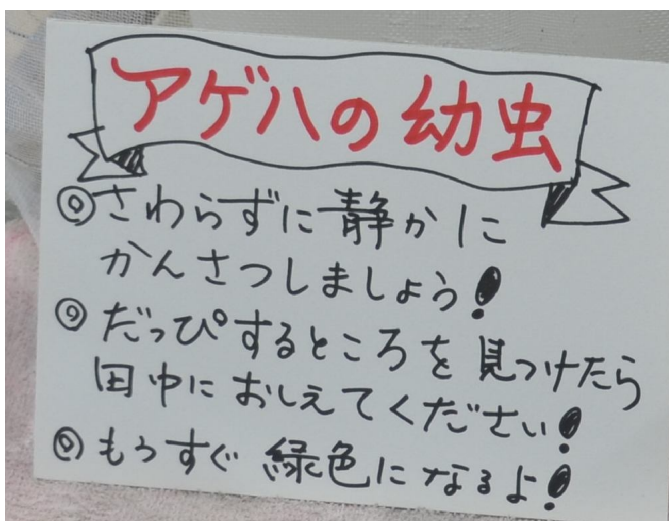 アゲハの幼虫
◎さわらずに静かに
かんさつしましょう!
◎だっぴするところを見つけたら
田中におしえてください!
◎もうすぐ緑色になるよ!